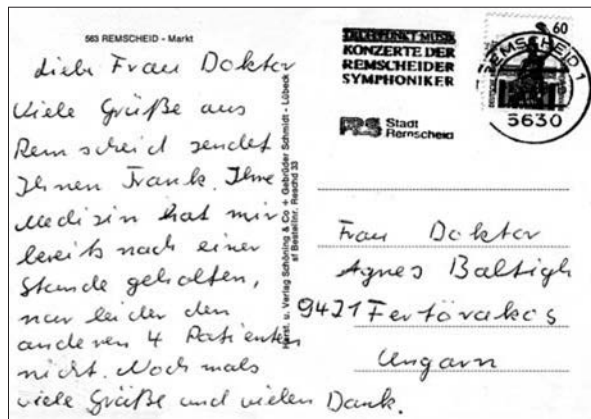 563 REMSCHEID - Markt
Liebe Frau Doktor
Viele Grüße aus
Remscheid sendet
Ihnen Frank. Ihre
Medizin hat mir
bereits nach einer
Stunde geholfen,
nur leider den
anderen 4 Patienten
nicht. Nochmals
viele Grüße und vielen Dank.
Verlag Schöning & Co + Gebrüder Schmidt - Lübeck
Bestellnr. Reschd 33
TREFFPUNKT MUSIK
KONZERTE DER
REMSCHEIDER
SYMPHONIKER
Stadt
Remscheid
60
REMSCHEID 1
5630
Frau Doktor
Agnes Baltigh
9421 Fertörakos
Ungarn